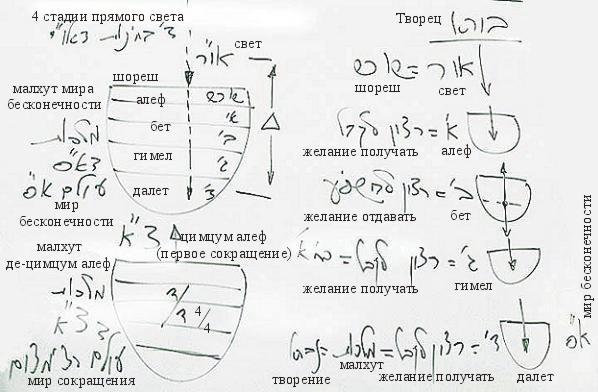 4 стадии прямого света
ד' בחינות דאו"י
свет
אור
шореш
שורש
малхут мира
бесконечности
алеф
א'
бет
ב'
гимел
ג'
далет
ד'
Δ
מלכות
דא"ס
עולם א"ס
мир
бесконечности
צ"א
цимцум алеф
(первое сокращение)
малхут
де-цимцум алеф
מלכות
דצ"א
4/4
עולם הצמצום
мир сокращения
Творец
בורא
אור = שורש
шореш свет
א' = רצון לקבל
желание получать алеф
ב' = רצון להשפיע
желание отдавать бет
ג' = רצון לקבל =
желание получать гимел
ד' = רצון לקבל = מלכות = נברא
малхут
творение желание получать далет
мир бесконечности
א"ס